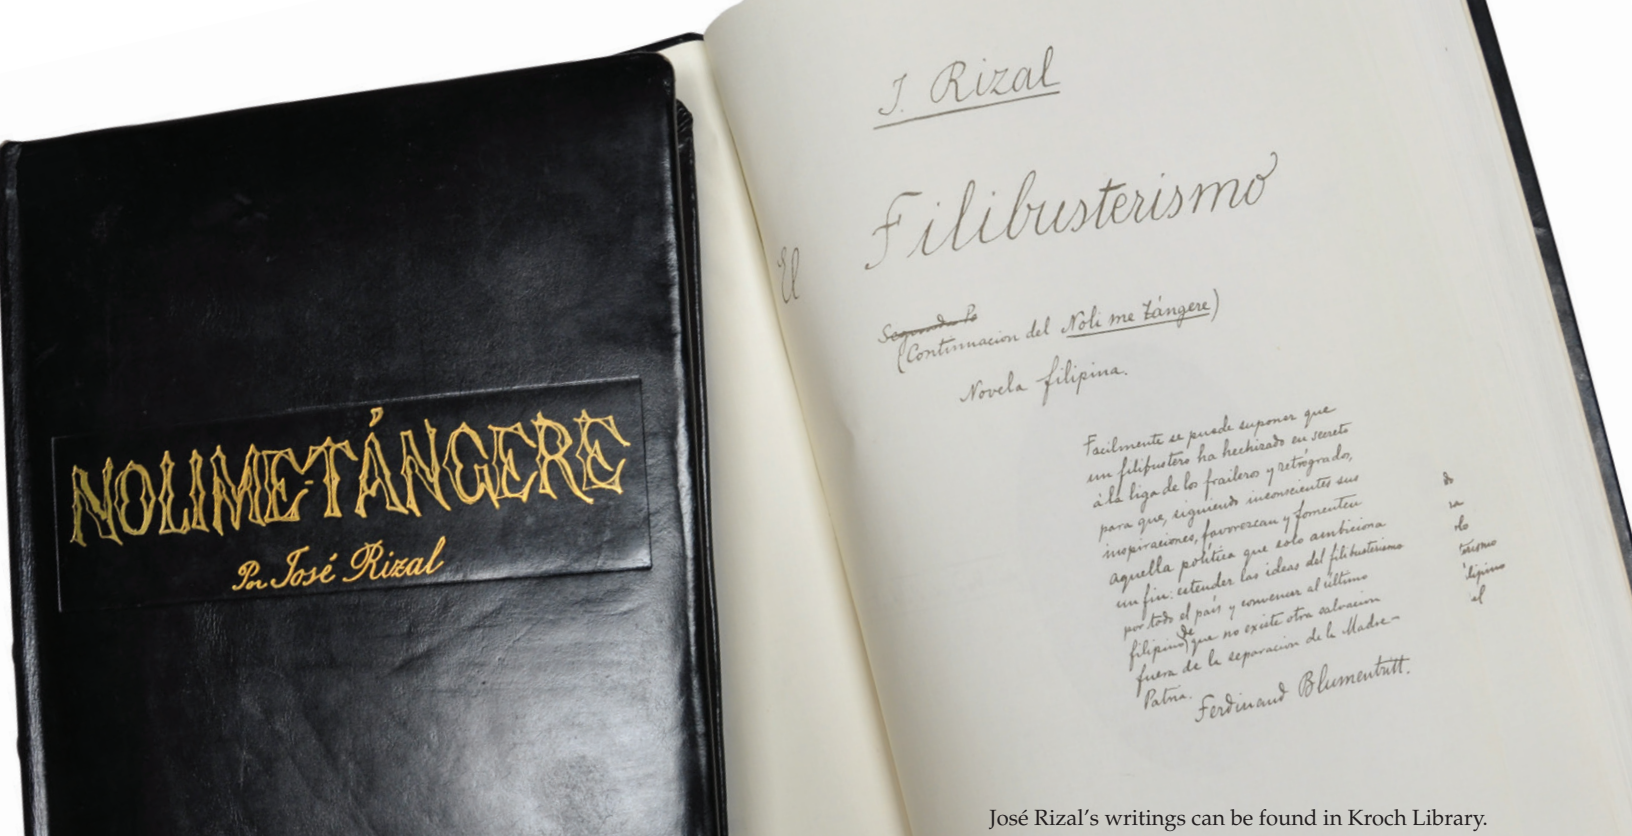 NOLI ME TÁNGERE
Por José Rizal
J. Rizal
El Filibusterismo
Segunda Pe
(Continuacion del Noli me tángere)
Novela filipina.
Facilmente se puede suponer que
un filibustero ha hechizado en secreto
á la liga de los fraileros y retrógrados,
para que, siguiendo inconscientes sus
inspiraciones, favorezcan y fomenten
aquella política que solo ambiciona
un fin: estender las ideas del filibusterismo
por todo el país y convencer al último
filipino de que no existe otra salvacion
fuera de la separacion de la Madre-
Patria.
Ferdinand Blumentritt.
do
sa
do
terismo
lipino
el
José Rizal’s writings can be found in Kroch Library.